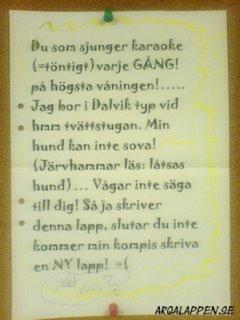 Du som sjunger karaoke
(=töntigt) varje GÅNG!
på högsta våningen!.....
Jag bor i Dalvik typ vid
hmm tvättstugan. Min
hund kan inte sova!
(Järvhammar läs: låtsas
hund)... Vågar inte säga
till dig! Så ja skriver
denna lapp, slutar du inte
kommer min kompis skriva
en NY lapp! =(
hus?
ARGALAPPEN.SE